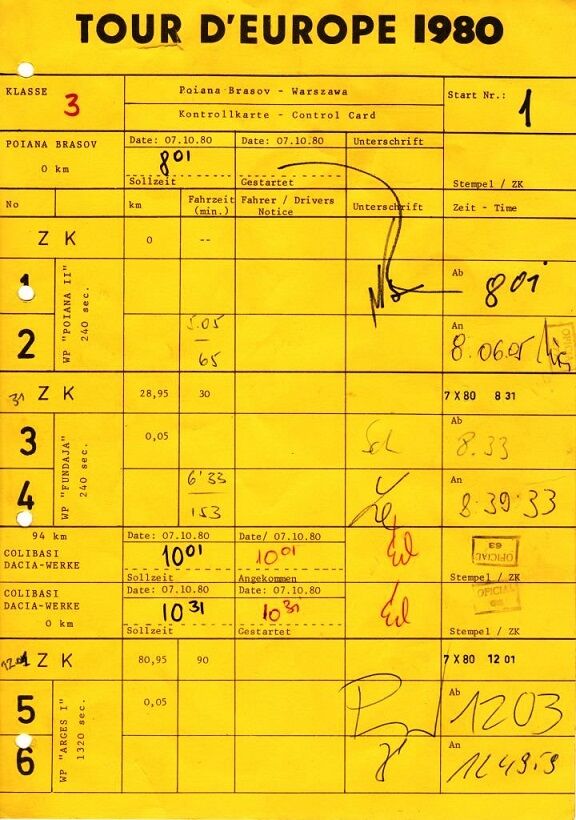 TOUR D'EUROPE 1980
KLASSE 3
Poiana Brasov - Warszawa
Kontrollkarte - Control Card
Start Nr.: 1
POIANA BRASOV
0 km
Date: 07.10.80
801
Sollzeit
Date: 07.10.80
Gestartet
Unterschrift
Stempel / ZK
No
km
Fahrzeit (min.)
Fahrer / Drivers Notice
Unterschrift
Zeit - Time
Z K 0 --
1
WP "POIANA II" 240 sec.
Ab 801
2
5.05
65
An 8.06.05
31 Z K 28,95 30
7 X 80 8 31
3
WP "FUNDAJA" 240 sec.
0,05
Ab 8.33
4
6'33
153
An 8.39.33
94 km
COLIBASI
DACIA-WERKE
Date: 07.10.80
1001
Sollzeit
Date/ 07.10.80
1001
Angekommen
OFICIAL
63
Stempel / ZK
COLIBASI
DACIA-WERKE
0 km
Date: 07.10.80
1031
Sollzeit
Date: 07.10.80
1031
Gestartet
OFICIAL
Stempel / ZK
Z K 80,95 90
7 X 80 12 01
5
WP "ARGES I" 1320 sec.
0,05
Ab 1203
6
An